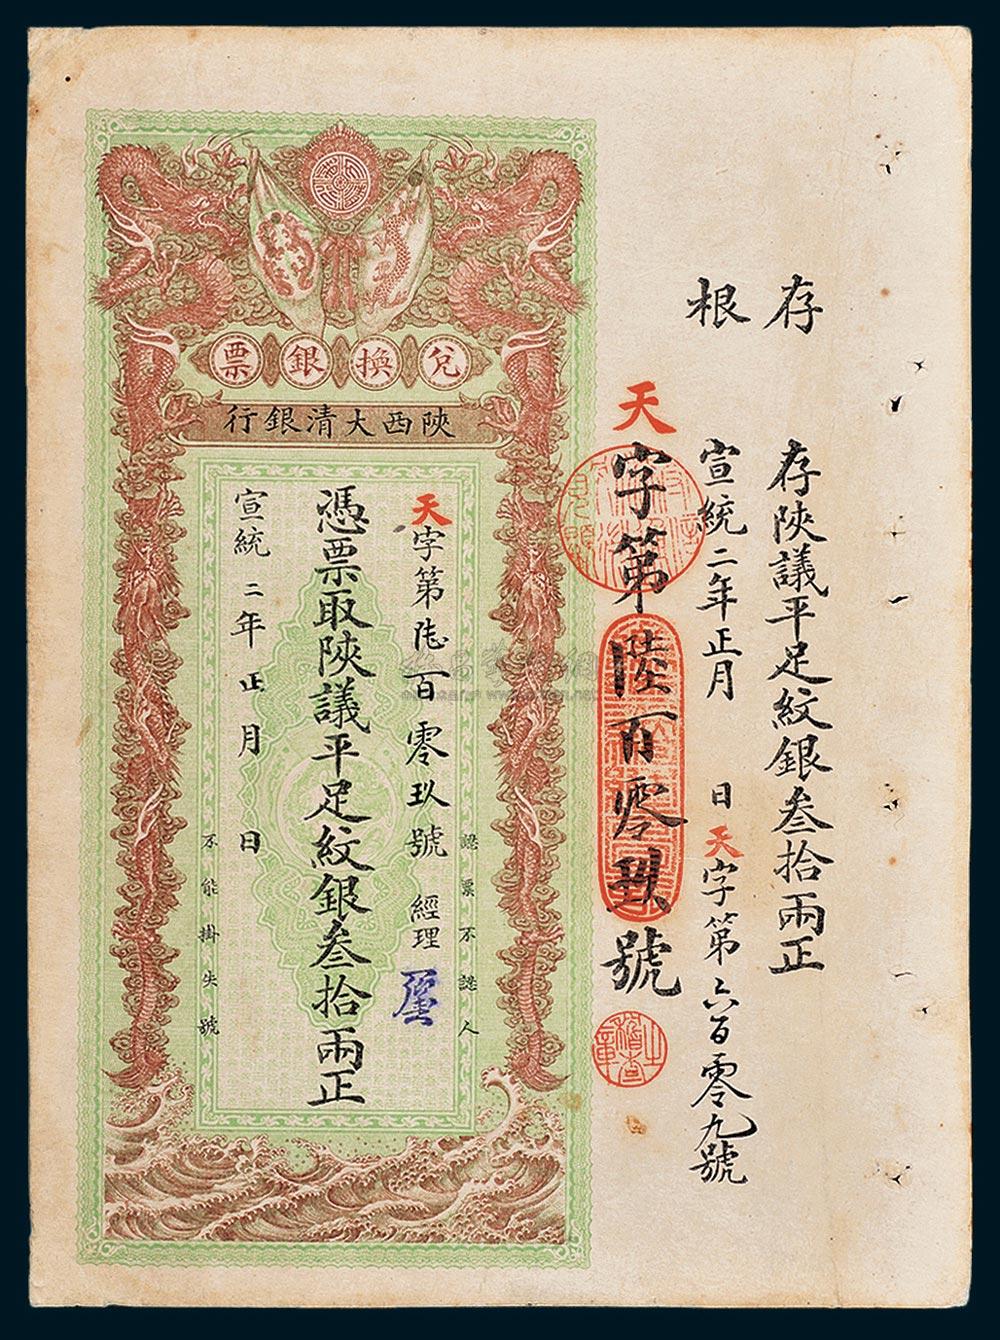 存根
存陝議平足紋銀叁拾兩正
宣統二年正月 日天字第六百零九號
天字第陸百零玖號
兌換銀票
陝西大清銀行
認票不認人
天字第陸百零玖號 經理
憑票取陝議平足紋銀叁拾兩正
宣統二年正月 日
不能掛失號
稽查